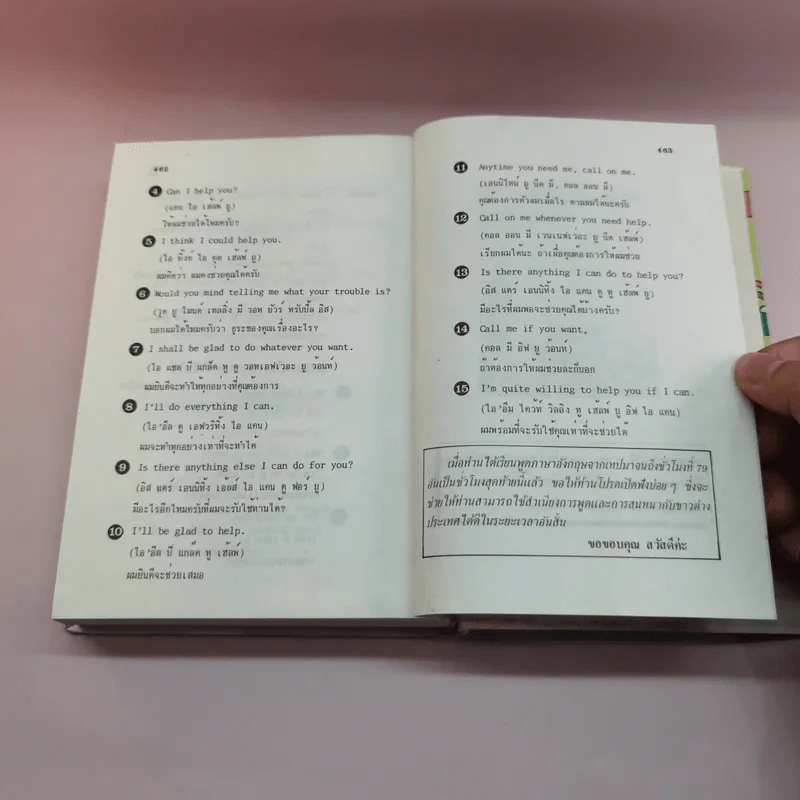 462
4 Can I help you?
(แคน ไอ เฮ้ลพ์ ยู)
ให้ผมช่วยได้ไหมครับ?
5 I think I could help you.
(ไอ ทิ้งค์ ไอ คุด เฮ้ลพ์ ยู)
ผมคิดว่า ผมคงช่วยคุณได้ครับ
6 Would you mind telling me what your trouble is?
(วูด ยู ไมนด์ เทลลิ่ง มี วอท ยัวร์ ทรับเบิ้ล อิส)
บอกผมได้ไหมครับว่า ธุระของคุณเรื่องอะไร?
7 I shall be glad to do whatever you want.
(ไอ แชล บี แกล็ด ทู ดู วอทเอฟเวอะ ยู ว้อนท์)
ผมยินดีจะทำให้ทุกอย่างที่คุณต้องการ
8 I'll do everything I can.
(ไอ'อืล ดู เอฟวริทิ้ง ไอ แคน)
ผมจะทำทุกอย่างเท่าที่จะทำได้
9 Is there anything else I can do for you?
(อิส แดร์ เอนนิทิ้ง เอลส์ ไอ แคน ดู ฟอร์ ยู)
มีอะไรอีกไหมครับที่ผมจะรับใช้ท่านได้?
10 I'll be glad to help.
(ไอ'อืล บี แกล็ด ทู เฮ้ลพ์)
ผมยินดีจะช่วยเสมอ
463
11 Anytime you need me, call on me.
(เอนนิไทม์ ยู นีด มี, คอล ออน มี)
คุณต้องการตัวผมเมื่อไร ตามผมได้นะครับ
12 Call on me whenever you need help.
(คอล ออน มี เวนเนฟเว่อะ ยู นีด เฮ้ลพ์)
เรียกผมได้นะ ถ้าเผื่อคุณต้องการให้ผมช่วย
13 Is there anything I can do to help you?
(อิส แดร์ เอนนิทิ้ง ไอ แคน ดู ทู เฮ้ลพ์ ยู)
มีอะไรที่ผมพอจะช่วยคุณได้บ้างครับ?
14 Call me if you want.
(คอล มี อิฟ ยู ว้อนท์)
ถ้าต้องการให้ผมช่วยละก็บอก
15 I'm quite willing to help you if I can.
(ไอ'อึม ไคว้ท์ วิลลิง ทู เฮ้ลพ์ ยู อิฟ ไอ แคน)
ผมพร้อมที่จะรับใช้คุณเท่าที่จะช่วยได้
เมื่อท่านได้เรียนพูดภาษาอังกฤษจากเทปมาจนถึงชั่วโมงที่ 79
อันเป็นชั่วโมงสุดท้ายนี้แล้ว ขอให้ท่านโปรดเปิดฟังบ่อย ๆ ซึ่งจะ
ช่วยให้ท่านสามารถใช้สำเนียงการพูดและการสนทนากับชาวต่าง
ประเทศได้ดีในระยะเวลาอันสั้น
ขอขอบคุณ สวัสดีค่ะ